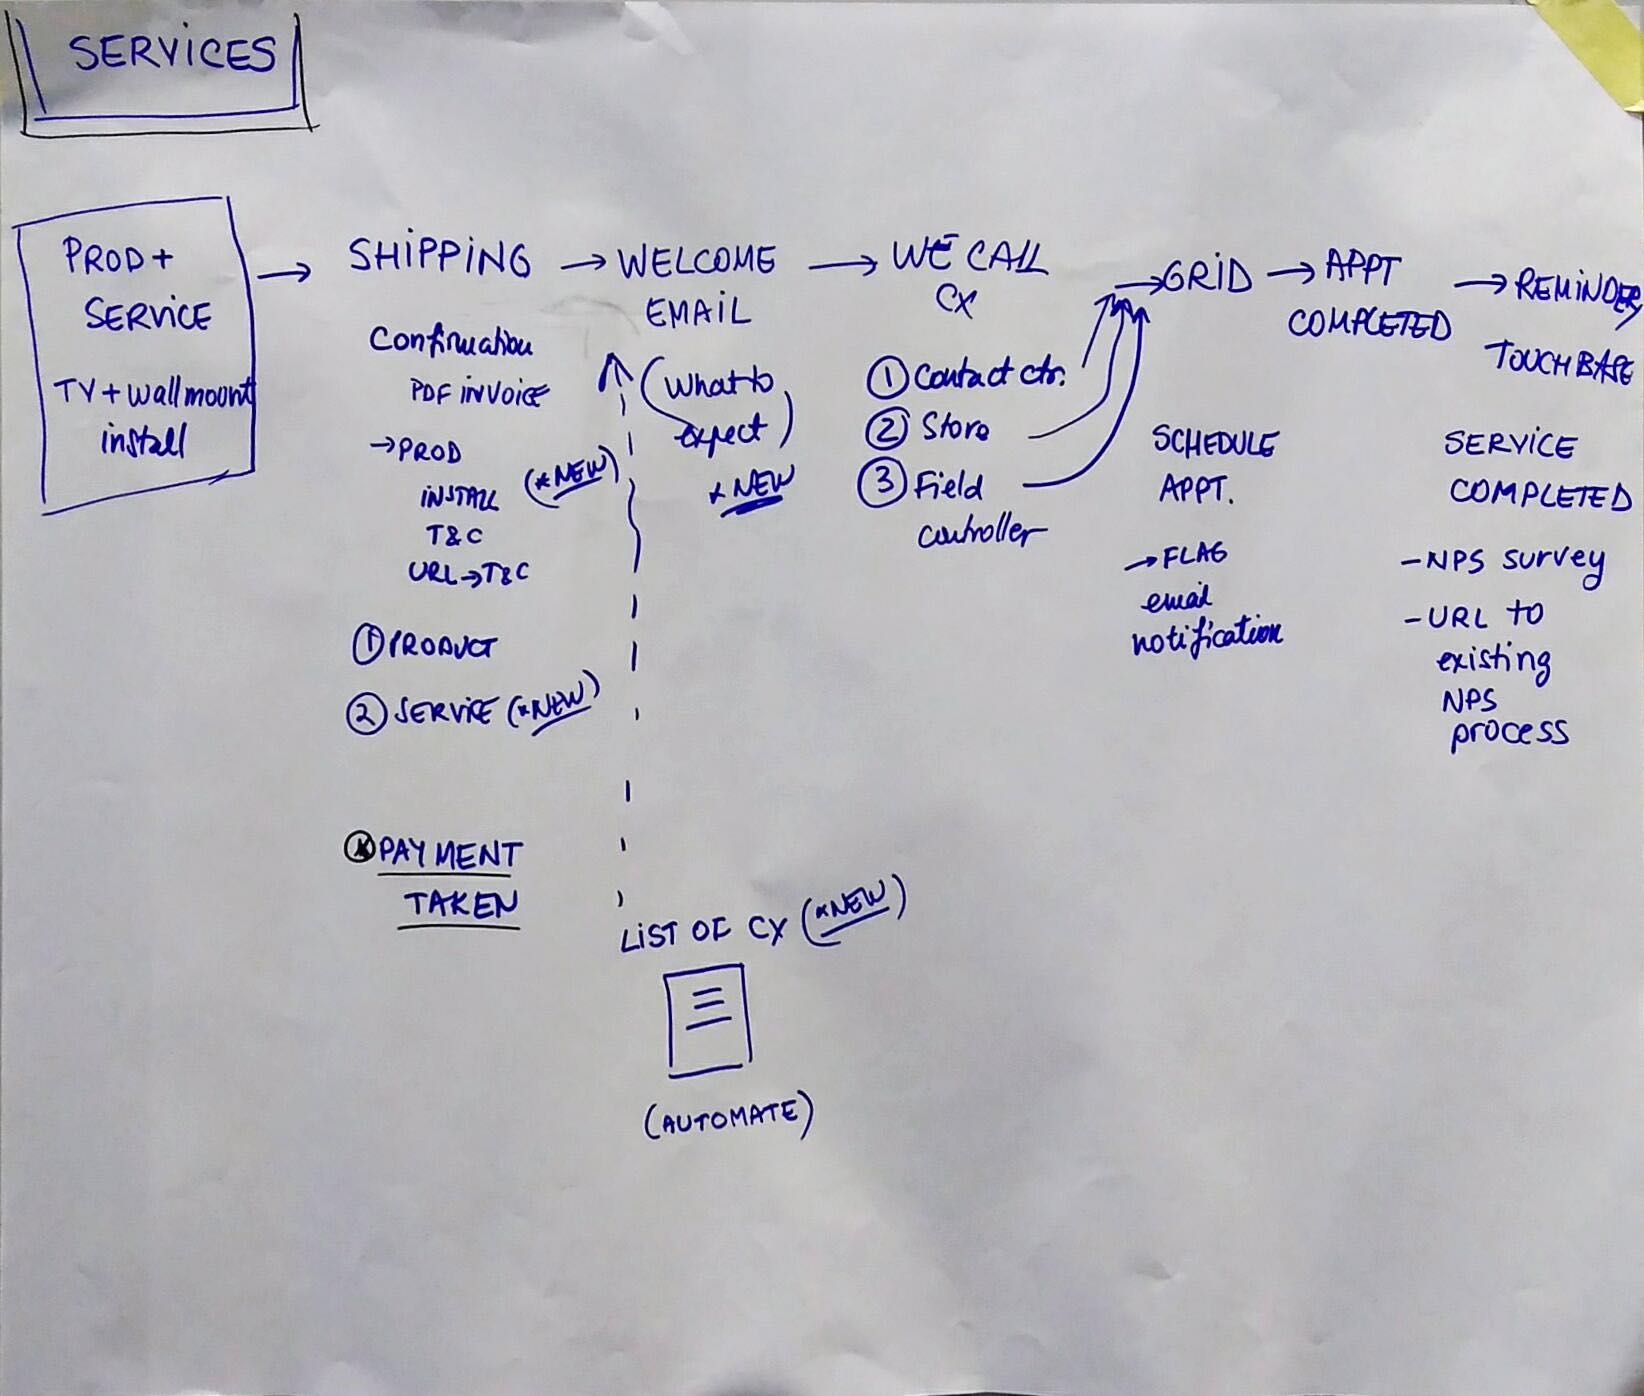 SERVICES
PROD +
SERVICE
TV + Wall mount
install
→ SHIPPING
Confirmation
PDF INVOICE
→ PROD
INSTALL (*NEW)
T&C
URL → T&C
① PRODUCT
② SERVICE (*NEW)
PAYMENT
TAKEN
→ WELCOME
EMAIL
(What to
expect)
* NEW
LIST OF CX (*NEW)
(AUTOMATE)
→ WE CALL
CX
① Contact ctr.
② Store
③ Field
controller
→ GRID
SCHEDULE
APPT.
→ FLAG
email
notification
→ APPT
COMPLETED
→ REMINDER/
TOUCH BASE
SERVICE
COMPLETED
- NPS survey
- URL to
existing
NPS
process